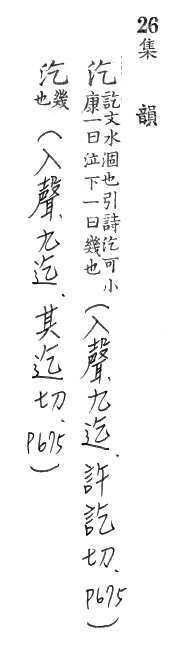 26 集 韻
汔 訖文水涸也引詩汔可小康一曰泣下一曰幾也 (入聲九迄、許訖切、P675)
汔 幾也 (入聲九迄、其迄切、P675)